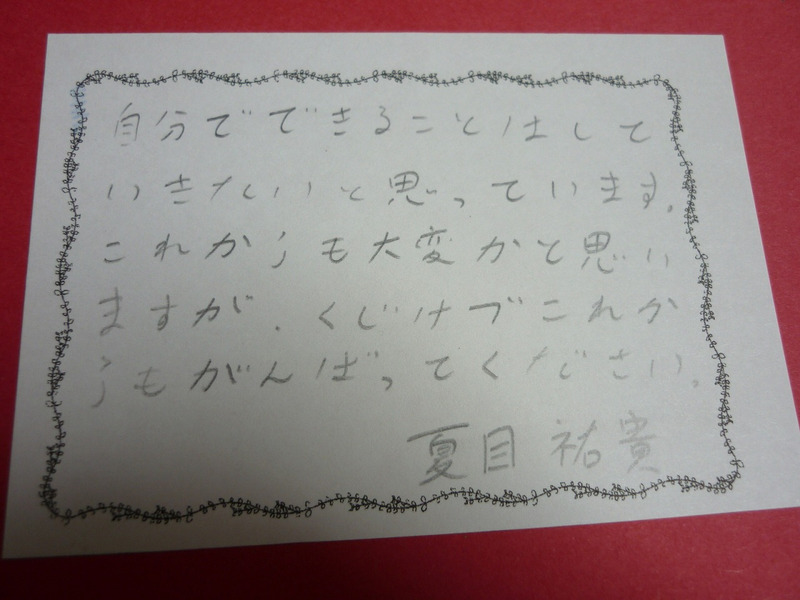 自分でできることはして
いきたいと思っています。
これからも大変かと思い
ますが、くじけずこれか
らもがんばってください。
夏目 祐貴